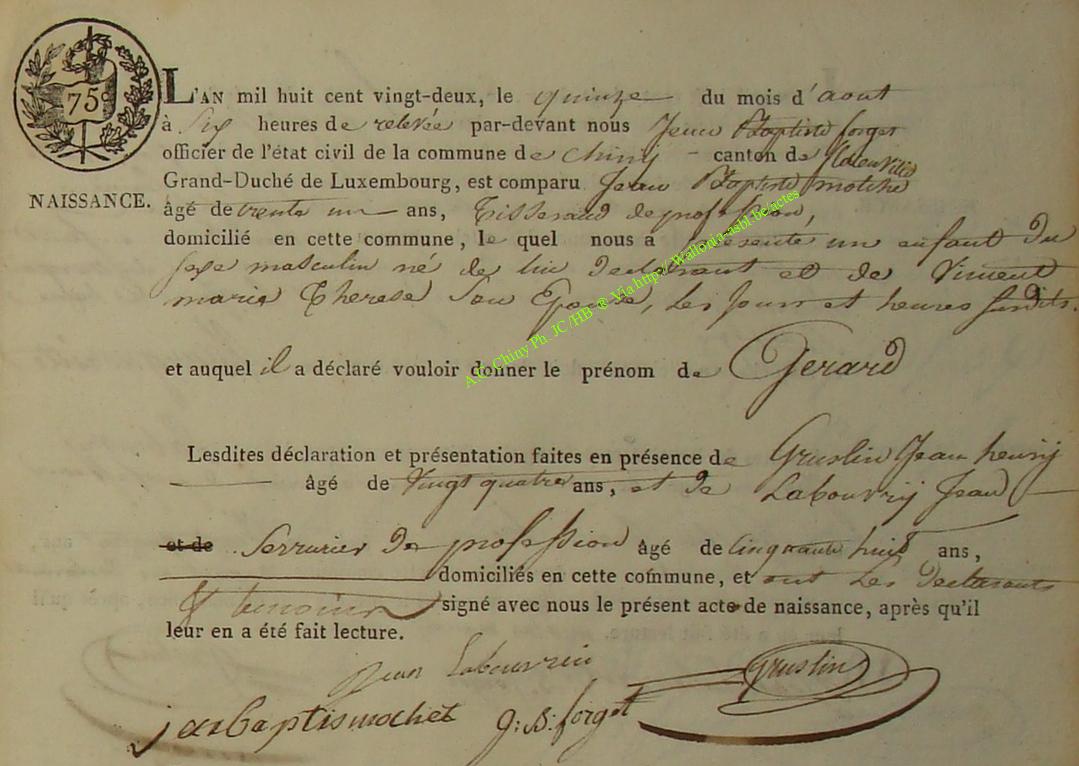 75c
NAISSANCE.
L'AN mil huit cent vingt-deux, le quinze du mois d'aout
à six heures de relevée par-devant nous Jean Baptiste forget
officier de l'état civil de la commune de chinij - canton de florenville
Grand-Duché de Luxembourg, est comparu Jean Baptiste
âgé de trente un ans, Tisserand de profession,
domicilié en cette commune, le quel nous a présenté un enfant du
sexe masculin né de lui declarant et de Viment
marie Therese son Epouse, les jours et heures susdits.
et auquel il a déclaré vouloir donner le prénom de Gerard
Lesdites déclaration et présentation faites en présence de Gruslin Jean henrij
âgé de Vingt quatre ans, et de Labouvrij Jean
et de Serrurier De profession âgé de Cinquante huit ans,
domiciliés en cette commune, et ont les declarants
et temoins signé avec nous le présent acte de naissance, après qu'il
leur en a été fait lecture.
jean Labouvrin
Gruslin
jeanbaptismochet
J: B: forget
A.C. Chiny Ph. JC /HB @ Via http:// Wallonia-asbl.be/actes